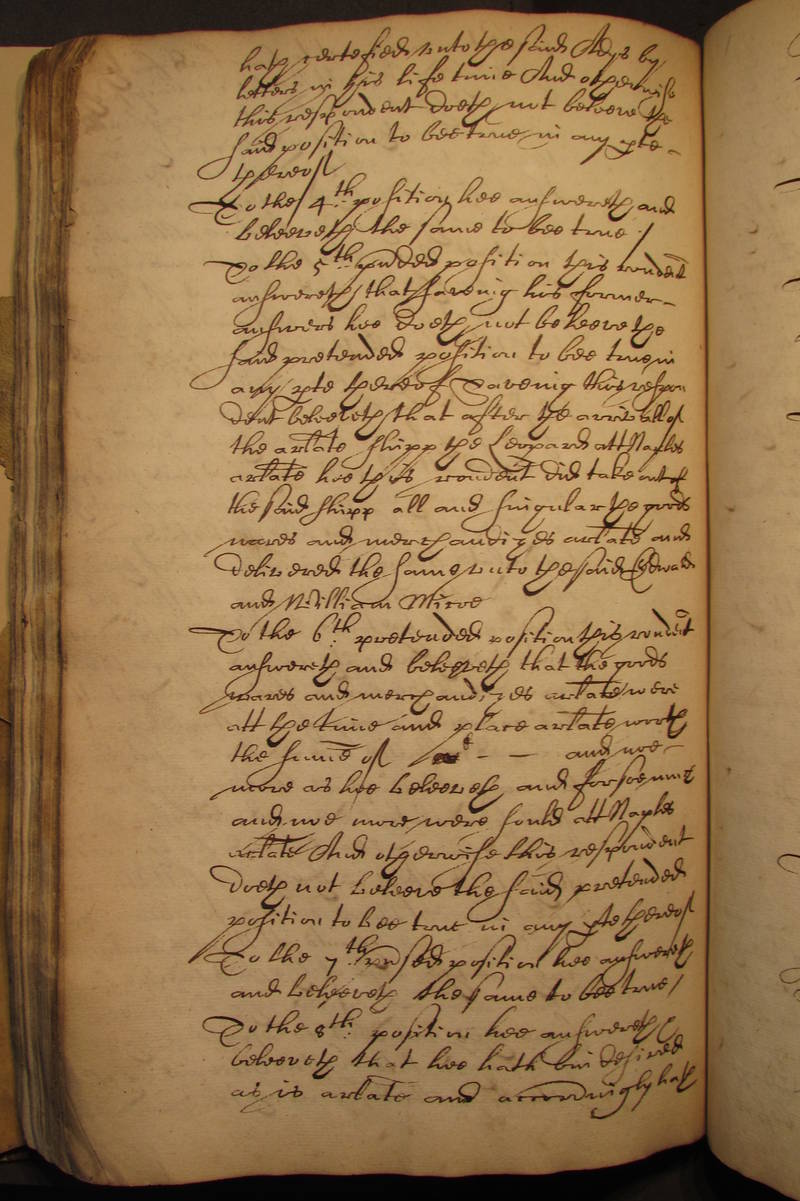 hath certefied unto the said Adys by
letters in his life time And otherwise
this respondent doeth not beleeve the
said position to bee true in any pte
thereof
To the 4th position hee answereth and
beleeveth the same to bee true /
To the 5th ptended position this rondent
answereth that saveing his former
answers hee doeth not beleeve the
said pretended position to bee true in
any pte thereof Saveing this respon
dent beleeveth that after the arivall of
the arlate shipp the Leopard att Naples
arlate hee this rondent did take out of
the said shipp all and singular the goods
wares and merchandizes arlate and
delivered the same unto the said Edward
and William Mico
To the 6th pretended position this rondent
answereth and beleeveth that the goods
wares and merchandizes arlate were
att the time and place arlate worth
the sume of - - and noe
more as hee beleeveth and for soe much
and noe more were sould att Naples
arlate And otherwise this respondent
doeth not beleeve the said pretended
position to bee true in any pte thereof
To the 7th position hee answereth
and beleeveth the same to bee true /
To the 8th position hee answereth &
beleeveth that hee hath bin desired
as is arlate and accordingly hath